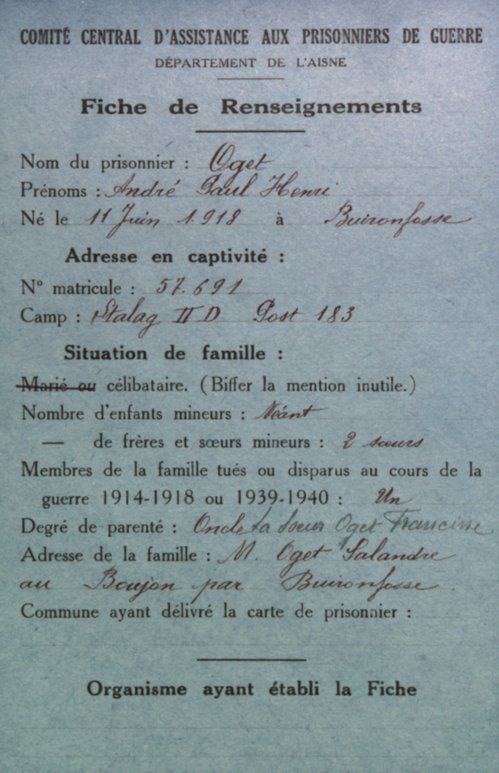 COMITÉ CENTRAL D'ASSISTANCE AUX PRISONNIERS DE GUERRE
DÉPARTEMENT DE L'AISNE
Fiche de Renseignements
Nom du prisonnier : Oget
Prénoms : André Paul Henri
Né le 11 Juin 1918 à Buironfosse
Adresse en captivité :
N° matricule : 57.691
Camp : Stalag II D Post 183
Situation de famille :
Marié ou célibataire. (Biffer la mention inutile.)
Nombre d'enfants mineurs : Néant
— de frères et sœurs mineurs : 2 sœurs
Membres de la famille tués ou disparus au cours de la
guerre 1914-1918 ou 1939-1940 : Un
Degré de parenté : Oncle la soeur Oget Francine
Adresse de la famille : M. Oget Salandre
au Boujon par Buironfosse
Commune ayant délivré la carte de prisonnier :
Organisme ayant établi la Fiche